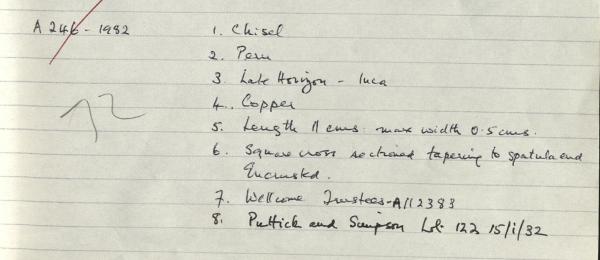 A 246 - 1982
1. Chisel
2. Peru
3. Late Horizon - Inca
4. Copper
5. Length 11 cms. max width 0.5 cms.
6. Square cross sectioned tapering to spatula end
Encrusted.
7. Wellcome Trustees - A112383
8. Puttick and Simpson Lot 122 15/i/32
72